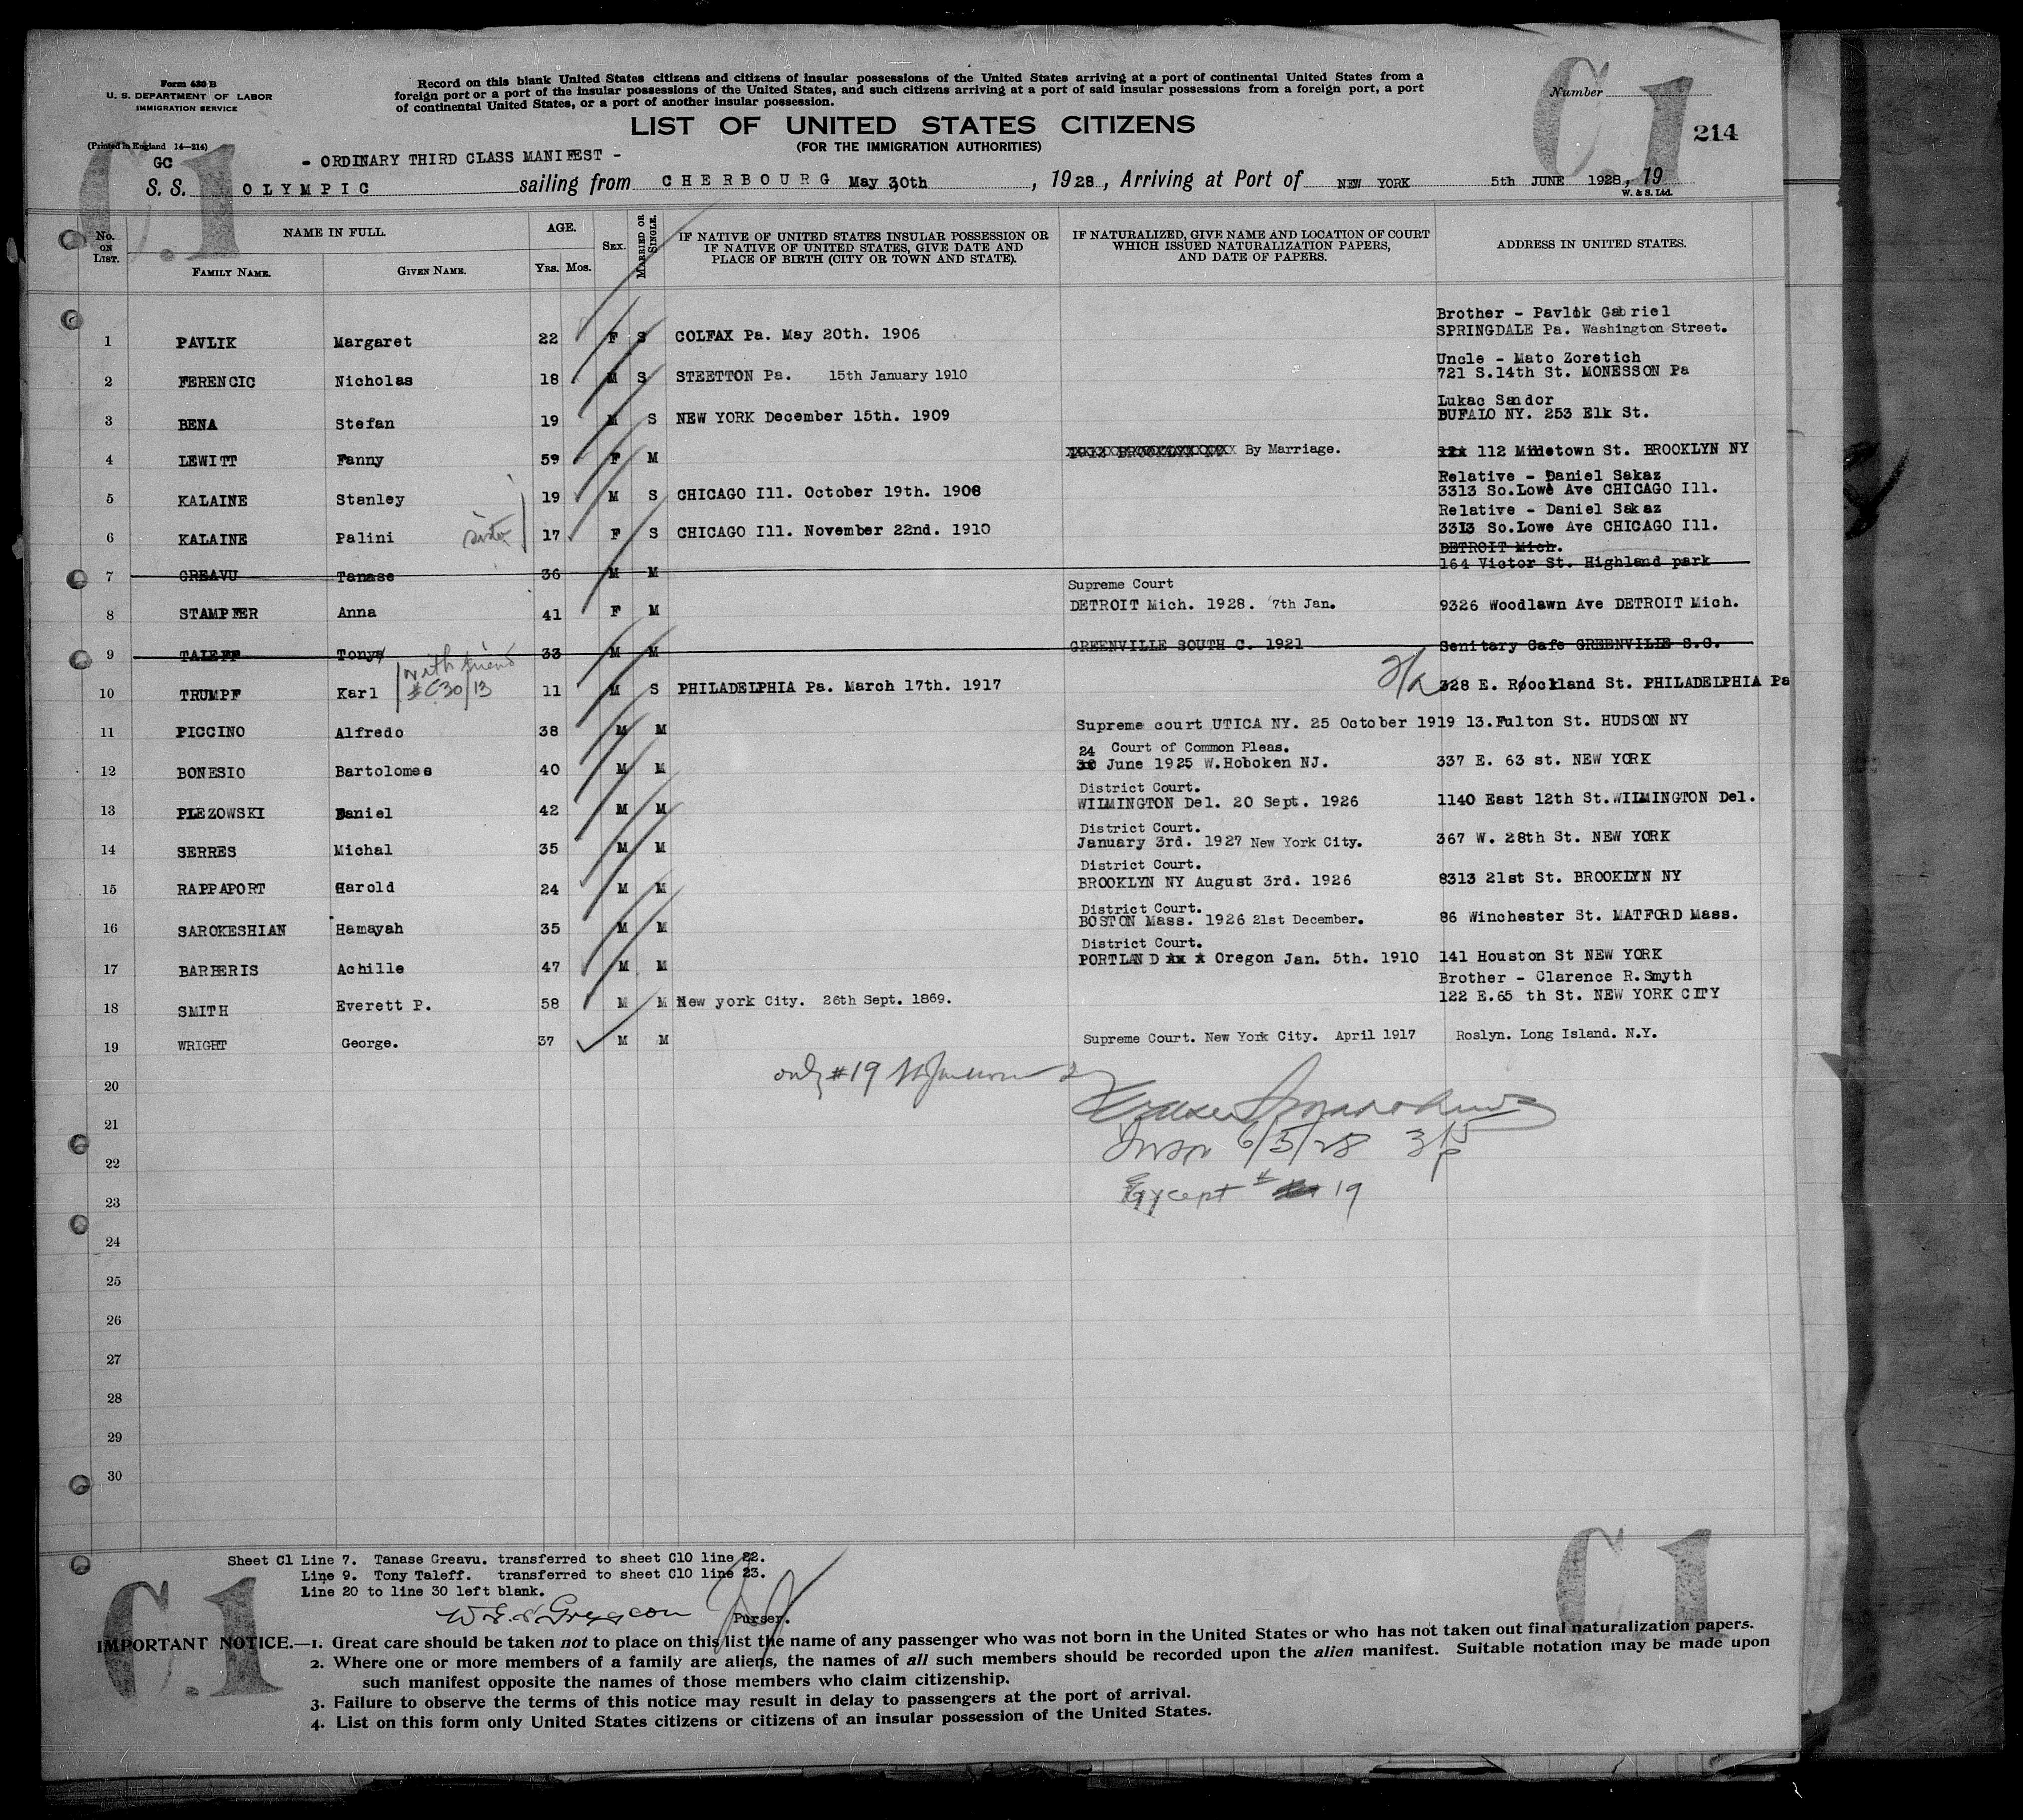 Form 630 B
U. S. DEPARTMENT OF LABOR
IMMIGRATION SERVICE
(Printed in England 14—214)
Record on this blank United States citizens and citizens of insular possessions of the United States arriving at a port of continental United States from a
foreign port or a port of the insular possessions of the United States, and such citizens arriving at a port of said insular possessions from a foreign port, a port
of continental United States, or a port of another insular possession.
Number
C.1 C.1
214
LIST OF UNITED STATES CITIZENS
(FOR THE IMMIGRATION AUTHORITIES)
GC - ORDINARY THIRD CLASS MANIFEST -
S. S. OLYMPIC sailing from CHERBOURG May 30th , 1928 , Arriving at Port of NEW YORK 5th JUNE 1928, 19
W. & S. Ltd.
No. ON LIST. NAME IN FULL. AGE. SEX. MARRIED OR SINGLE. IF NATIVE OF UNITED STATES INSULAR POSSESSION OR IF NATIVE OF UNITED STATES, GIVE DATE AND PLACE OF BIRTH (CITY OR TOWN AND STATE). IF NATURALIZED, GIVE NAME AND LOCATION OF COURT WHICH ISSUED NATURALIZATION PAPERS, AND DATE OF PAPERS. ADDRESS IN UNITED STATES.
FAMILY NAME. GIVEN NAME. YRS. MOS.
Brother - Pavlik Gabriel
1 PAVLIK Margaret 22 F S COLFAX Pa. May 20th. 1906 SPRINGDALE Pa. Washington Street.
Uncle - Mato Zoretich
2 FERENCIC Nicholas 18 M S STEETTON Pa. 15th January 1910 721 S.14th St. MONESSON Pa
Lukac Sandor
3 BENA Stefan 19 M S NEW YORK December 15th. 1909 BUFALO NY. 253 Elk St.
4 LEWITT Fanny 59 F M By Marriage. 112 Midletown St. BROOKLYN NY
Relative - Daniel Sakaz
5 KALAINE Stanley 19 M S CHICAGO Ill. October 19th. 1908 3313 So.Lowe Ave CHICAGO Ill.
Relative - Daniel Sakaz
6 KALAINE Palini sister 17 F S CHICAGO Ill. November 22nd. 1910 3313 So.Lowe Ave CHICAGO Ill.
DETROIT Mich.
7 GREAVU Tanase 36 M M 164 Victor St. Highland park
Supreme Court
8 STAMPFER Anna 41 F M DETROIT Mich. 1928. 7th Jan. 9326 Woodlawn Ave DETROIT Mich.
9 TALEFF Tony 33 M M GREENVILLE SOUTH C. 1921 Senitary Cafe GREENVILLE S.C.
with friend
#C30/13
10 TRUMPF Karl 11 M S PHILADELPHIA Pa. March 17th. 1917 328 E. Roockland St. PHILADELPHIA Pa
11 PICCINO Alfredo 38 M M Supreme court UTICA NY. 25 October 1919 13.Fulton St. HUDSON NY
24 Court of Common Pleas.
12 BONESIO Bartolomes 40 M M 30 June 1925 W.Hoboken NJ. 337 E. 63 st. NEW YORK
District Court.
13 PLEZOWSKI Daniel 42 M M WILMINGTON Del. 20 Sept. 1926 1140 East 12th St.WILMINGTON Del.
District Court.
14 SERRES Michal 35 M M January 3rd. 1927 New York City. 367 W. 28th St. NEW YORK
District Court.
15 RAPPAPORT Harold 24 M M BROOKLYN NY August 3rd. 1926 8313 21st St. BROOKLYN NY
District Court.
16 SAROKESHIAN Hamayah 35 M M BOSTON Mass. 1926 21st December. 86 Winchester St. MATFORD Mass.
District Court.
17 BARBERIS Achille 47 M M PORTLAND Oregon Jan. 5th. 1910 141 Houston St NEW YORK
Brother - Clarence R.Smyth
18 SMITH Everett P. 58 M M New york City. 26th Sept. 1869. 122 E.65 th St. NEW YORK CITY
19 WRIGHT George. 37 M M Supreme Court. New York City. April 1917 Roslyn. Long Island. N.Y.
only #19
20
21
Insp 6/5/28
22
Except # 19
23
24
25
26
27
28
29
30
Sheet C1 Line 7. Tanase Greavu. transferred to sheet C10 line 22.
Line 9. Tony Taleff. transferred to sheet C10 line 23.
Line 20 to line 30 left blank.
Purser.
C.1 C.1
IMPORTANT NOTICE.—1. Great care should be taken not to place on this list the name of any passenger who was not born in the United States or who has not taken out final naturalization papers.
2. Where one or more members of a family are aliens, the names of all such members should be recorded upon the alien manifest. Suitable notation may be made upon
such manifest opposite the names of those members who claim citizenship.
3. Failure to observe the terms of this notice may result in delay to passengers at the port of arrival.
4. List on this form only United States citizens or citizens of an insular possession of the United States.